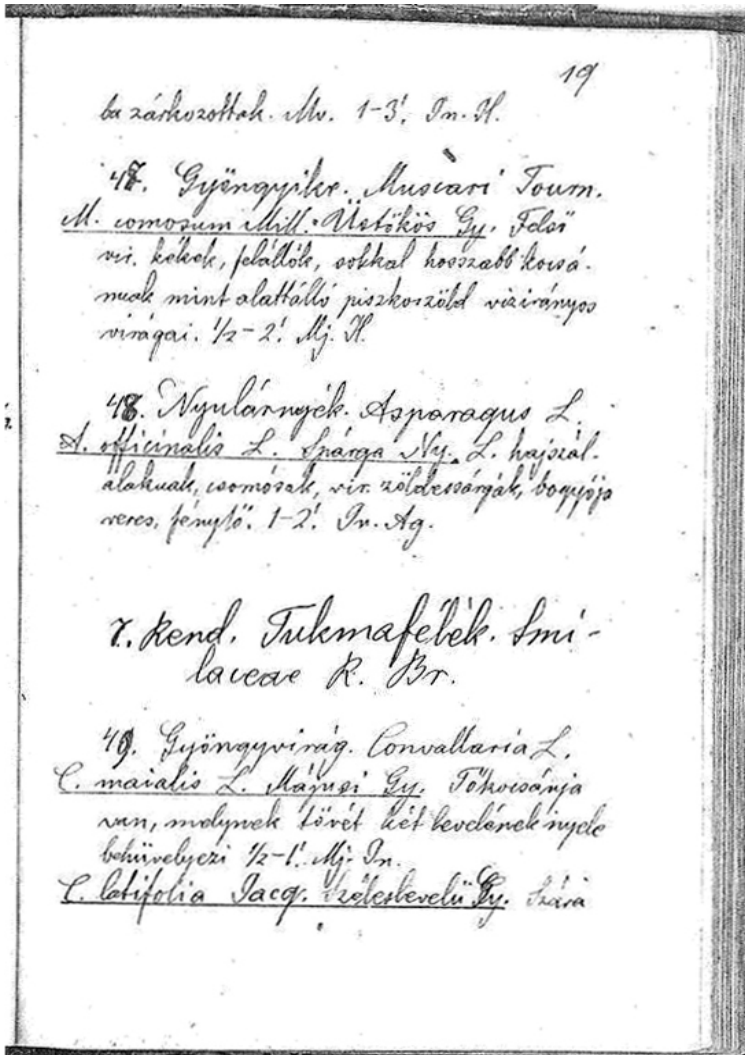 19
ba zárkozottak. Mv. 1-3'. Jn. H.
47. Gyöngyike. Muscari Tourn.
M. comosum Mill. Üstökös Gy. Felső
vir. kékek, felállók, sokkal hosszabb kocsá-
nuak mint alattálló piszkoszöld vizirányos
virágai. 1/2-2'. Mj. H.
48. Nyulárnyék. Asparagus L.
A. officinalis L. Spárga Ny. L. hajszál-
alakuak, csomósak, vir. zöldessárgák, bogyója
veres, fénylő. 1-2'. Jn. Ag.
7. Rend. Tukmafélék. Smi-
laceae R. Br.
49. Gyöngyvirág. Convallaria L.
C. maialis L. Májusi Gy. Tőkocsánja
van, melynek tövét két levelének nyele
behüvelyezi 1/2-1'. Mj. Jn.
C. latifolia Jacq. Széleslevelü Gy. Szára